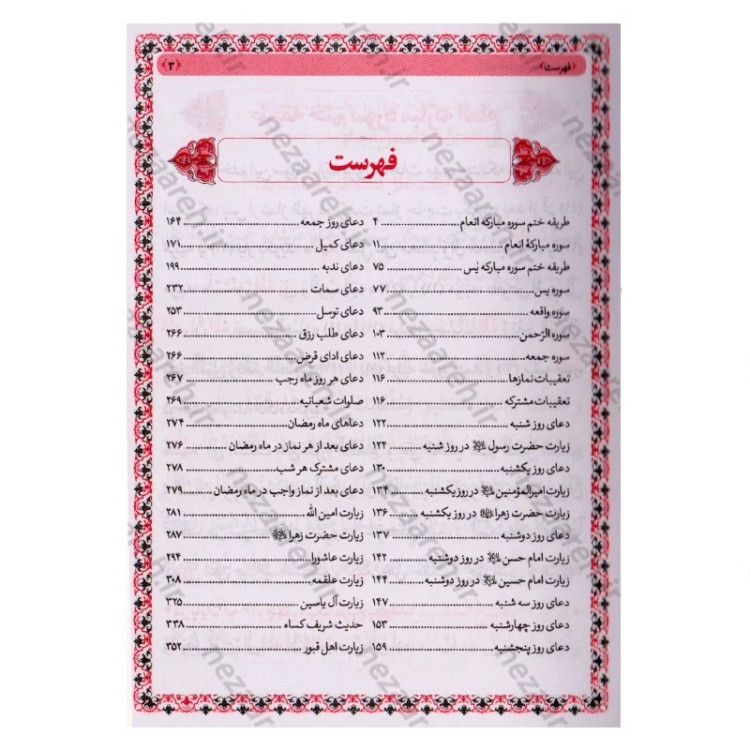 ﴿فهرست﴾
﴿۳﴾
فهرست
طریقه ختم سوره مبارکه انعام ۴
سوره مبارکهٔ انعام ۱۱
طریقه ختم سوره مبارکه یس ۷۵
سوره یس ۷۷
سوره واقعه ۹۳
سوره الرّحمن ۱۰۳
سوره جمعه ۱۱۲
تعقیبات نمازها ۱۱۶
تعقیبات مشترکه ۱۱۶
دعای روز شنبه ۱۲۲
زیارت حضرت رسول ﷺ در روز شنبه ۱۲۴
دعای روز یکشنبه ۱۳۰
زیارت امیرالمؤمنین در روز یکشنبه ۱۳۴
زیارت حضرت زهرا در روز یکشنبه ۱۳۶
دعای روز دوشنبه ۱۳۷
زیارت امام حسن در روز دوشنبه ۱۴۲
زیارت امام حسین در روز دوشنبه ۱۴۴
دعای روز سه شنبه ۱۴۷
دعای روز چهارشنبه ۱۵۳
دعای روز پنجشنبه ۱۵۹
دعای روز جمعه ۱۶۴
دعای کمیل ۱۷۱
دعای ندبه ۱۹۹
دعای سمات ۲۳۲
دعای توسل ۲۵۳
دعای طلب رزق ۲۶۶
دعای ادای قرض ۲۶۶
دعای هر روز ماه رجب ۲۶۷
صلوات شعبانیه ۲۶۹
دعاهای ماه رمضان ۲۷۴
دعای بعد از هر نماز در ماه رمضان ۲۷۶
دعای مشترک هر شب ۲۷۸
دعای بعد از نماز واجب در ماه رمضان ۲۷۹
زیارت امین الله ۲۸۱
زیارت حضرت زهرا ۲۸۷
زیارت عاشورا ۲۹۴
زیارت علقمه ۳۰۸
زیارت آل یاسین ۳۲۵
حدیث شریف کساء ۳۳۸
زیارت اهل قبور ۳۵۲
nezaareh.ir